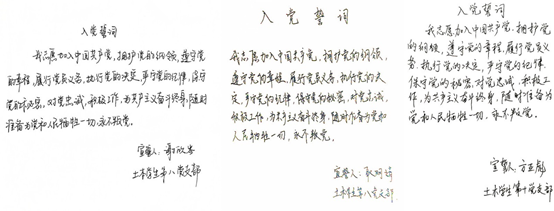 入党誓词
我志愿加入中国共产党，拥护党的纲领，遵守党
的章程，履行党员义务，执行党的决定，严守党的纪律，保守
党的秘密，对党忠诚，积极工作，为共产主义奋斗终身，随时
准备为党和人民牺牲一切，永不叛党。
宣誓人：
土木学生第八党支部
入党誓词
我志愿加入中国共产党，拥护党的纲领，
遵守党的章程，履行党员义务，执行党的决
定，严守党的纪律，保守党的秘密，对党忠诚，
积极工作，为共产主义奋斗终身，随时准备为党
和人民牺牲一切，永不叛党。
宣誓人：
土木学生第八党支部
入党誓词
我志愿加入中国共产党，拥护党
的纲领，遵守党的章程，履行党员义
务，执行党的决定，严守党的纪律，
保守党的秘密，对党忠诚，积极工
作，为共产主义奋斗终身，随时准备为
党和人民牺牲一切，永不叛党。
宣誓人：
土木学生第十党支部